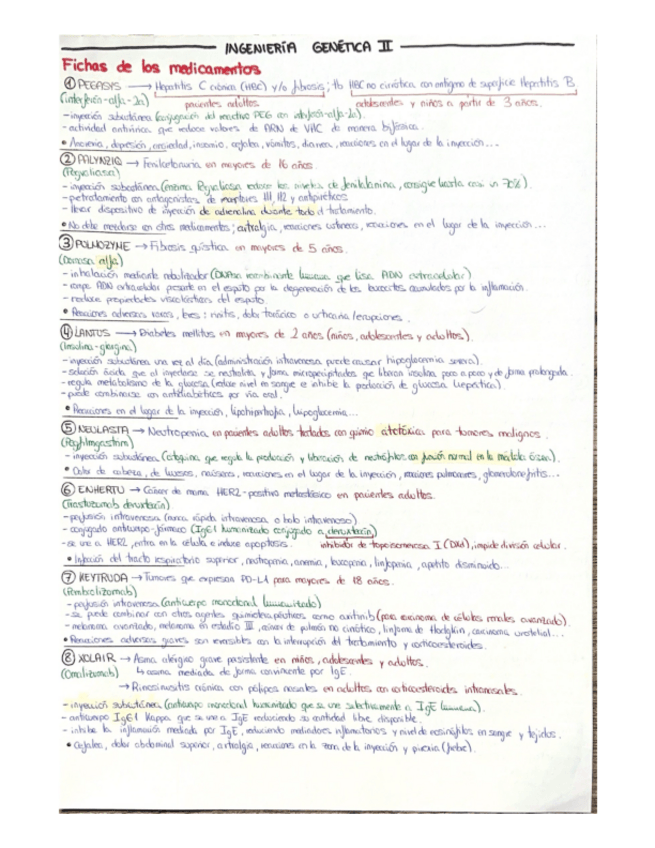 INGENIERÍA GENÉTICA II
Fichas de los medicamentos
① PEGASYS → Hepatitis C crónica (HBC) y/o fibrosis; tb HBC no cirrótica con antígeno de superficie Hepatitis B
(interferón-alfa-2a) pacientes adultos adolescentes y niños a partir de 3 años.
- inyección subcutánea (conjugación del reactivo PEG con interferón-alfa-2a).
- actividad antivírica que reduce valores de ARN de VHC de manera bifásica.
• Anorexia, depresión, ansiedad, insomnio, cefalea, vómitos, diarrea, reacciones en el lugar de la inyección...
② PALYNZIQ → Fenilcetonuria en mayores de 16 años.
(Pegvaliasa)
- inyección subcutánea (misma Pegvaliasa reduce los niveles de fenilalanina, consigue hasta casi un 70%).
- pretratamiento con antagonistas de receptores H1, H2 y antipiréticos
- llevar dispositivo de inyección de adrenalina durante todo el tratamiento.
• No debe mezclarse con otros medicamentos; artralgia, reacciones cutáneas, reacciones en el lugar de la inyección...
③ PULMOZYME → Fibrosis quística en mayores de 5 años.
(Dornasa alfa)
- inhalación mediante nebulizador (DNAsa recombinante humana que lisa ADN extracelular)
- rompe ADN extracelular presente en el esputo por la degeneración de los leucocitos acumulados por la inflamación.
- reduce propiedades viscoelásticas del esputo.
• Reacciones adversas raras, leves: rinitis, dolor torácico o urticaria/erupciones.
④ LANTUS → Diabetes mellitus en mayores de 2 años (niños, adolescentes y adultos).
(Insulina-glargina)
- inyección subcutánea una vez al día (administración intravenosa puede causar hipoglucemia severa).
- solución ácida que al inyectarse se neutraliza y forma microprecipitados que liberan insulina poco a poco y de forma prolongada.
- regula metabolismo de la glucosa (reduce nivel en sangre e inhibe la producción de glucosa hepática).
- puede combinarse con antidiabéticos por vía oral.
• Reacciones en el lugar de la inyección, lipohipertrofia, hipoglucemia...
⑤ NEULASTA → Neutropenia en pacientes adultos tratados con quimio citotóxica para tumores malignos.
(Pegfilgrastim)
- inyección subcutánea (citoquina que regula la producción y liberación de neutrófilos con función normal en la médula ósea).
• Dolor de cabeza, de huesos, náuseas, reacciones en el lugar de la inyección, reacciones pulmonares, glomerulonefritis...
⑥ ENHERTU → Cáncer de mama HER2-positivo metastásico en pacientes adultos.
(trastuzumab deruxtecán)
- perfusión intravenosa (nunca rápida intravenosa o bolo intravenoso)
- conjugado anticuerpo-fármaco (IgG1 humanizado conjugado a deruxtecán)
- se une a HER2, entra en la célula e induce apoptosis. inhibidor de topoisomerasa I (DXd), impide división celular.
• Infección del tracto respiratorio superior, neutropenia, anemia, leucopenia, linfopenia, apetito disminuido...
⑦ KEYTRUDA → Tumores que expresan PD-L1 para mayores de 18 años.
(Pembrolizumab)
- perfusión intravenosa (anticuerpo monoclonal humanizado)
- se puede combinar con otros agentes quimioterapéuticos como axitinib (para carcinoma de células renales avanzado).
- melanoma avanzado, melanoma en estadio III, cáncer de pulmón no microcítico, linfoma de Hodgkin, carcinoma urotelial...
• Reacciones adversas graves son reversibles con la interrupción del tratamiento y corticoesteroides.
⑧ XOLAIR → Asma alérgico grave persistente en niños, adolescentes y adultos.
(Omalizumab) ↳ asma mediada de forma convincente por IgE.
→ Rinosinusitis crónica con pólipos nasales en adultos con corticoesteroides intranasales.
- inyección subcutánea (anticuerpo monoclonal humanizado que se une selectivamente a IgE humana).
- anticuerpo IgG1 Kappa que se une a IgE reduciendo su cantidad libre disponible.
- inhibe la inflamación mediada por IgE, reduciendo mediadores inflamatorios y nivel de eosinófilos en sangre y tejidos.
• Cefalea, dolor abdominal superior, artralgia, reacciones en la zona de la inyección y pirexia (fiebre).